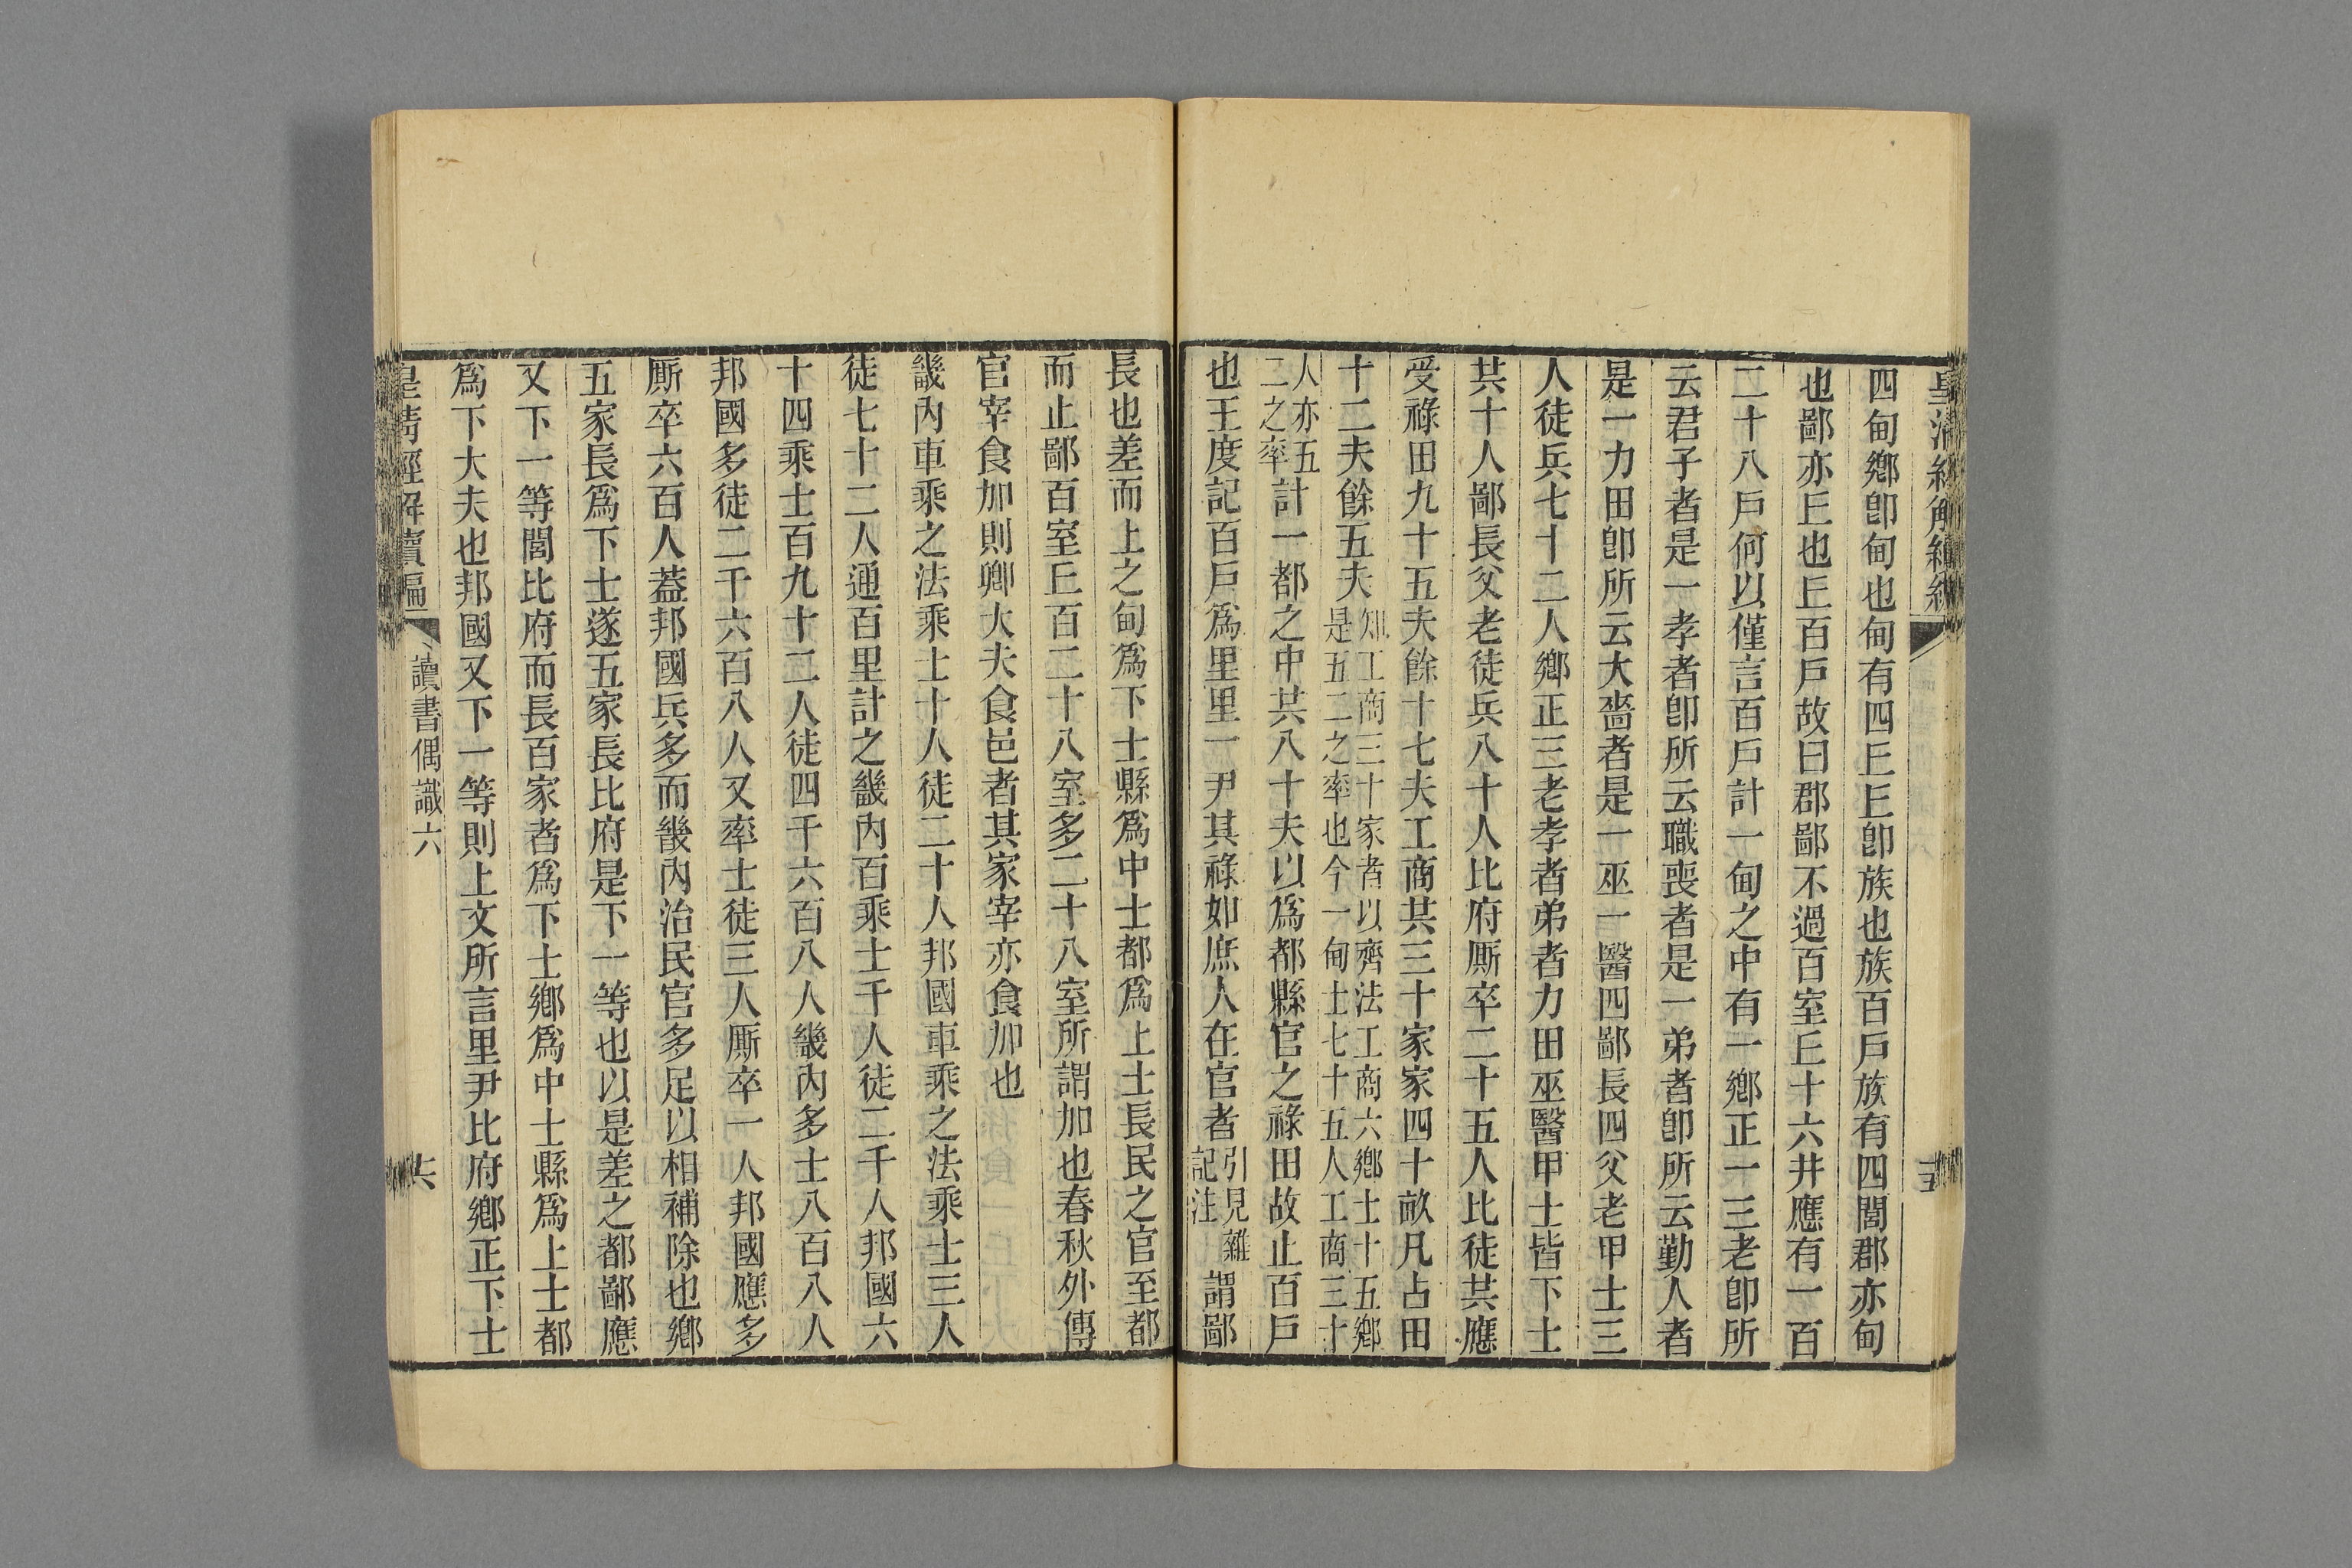 四甸鄉卽甸也甸有四𠀉𠀉卽族也族百戸族有四閭郡亦甸
也鄙亦𠀉也𠀉百戸故曰郡鄙不過百室𠀉十六井應有一百
二十八戸何以僅言百戸計一甸之中有一鄉正一三老卽所
云君子者是一孝者卽所云職喪者是一弟者卽所云勤人者
是一力田卽所云大嗇者是一巫一醫四鄙長四父老甲士三
人徒兵七十二人鄉正三老孝者弟者力田巫醫甲士皆下士
共十人鄙長父老徒兵八十人比府厮卒二十五人比徒其應
受祿田九十五夫餘十七夫工商共三十家家四十畝凡占田
十二夫餘五夫知工商三十家者以齊法工商六鄉士十五鄉
是五二之率也今一甸士七十五人工商三十
人亦五
二之率計一都之中共八十夫以爲都縣官之祿田故止百戸
也王度記百戸爲里里一尹其祿如庶人在官者引見雜
記注謂鄙
長也差而上之甸爲下士縣爲中士都爲上士長民之官至都
而止鄙百室𠀉百二十八室多二十八室所謂加也春秋外傳
官宰食加則卿大夫食邑者其家宰亦食加也
畿內車乘之法乘士十人徒二十人邦國車乘之法乘士三人
徒七十二人通百里計之畿內百乘士千人徒二千人邦國六
十四乘士百九十二人徒四千六百八人畿內多士八百八人
邦國多徒二千六百八人又率士徒三人厮卒一人邦國應多
厮卒六百人蓋邦國兵多而畿內治民官多足以相補除也鄉
五家長爲下士遂五家長比府是下一等也以是差之都鄙應
又下一等閭比府而長百家者爲下士鄉爲中士縣爲上士都
爲下大夫也邦國又下一等則上文所言里尹比府鄉正下士
皇清經解續編
讀書偶識六
共